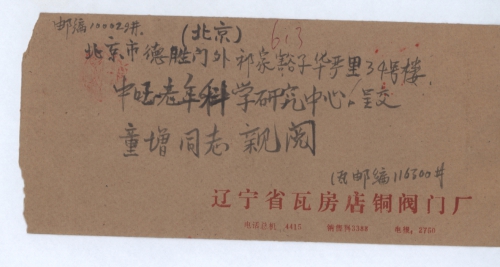 邮编100029井
(北京)
613
北京市德胜门外祁家豁子华严里34号楼
中国老年科学研究中心 呈交
童增同志 親阅
邮编116300井
辽宁省瓦房店铜阀门厂
电话总机 4415 销售科3388 电挂：2750